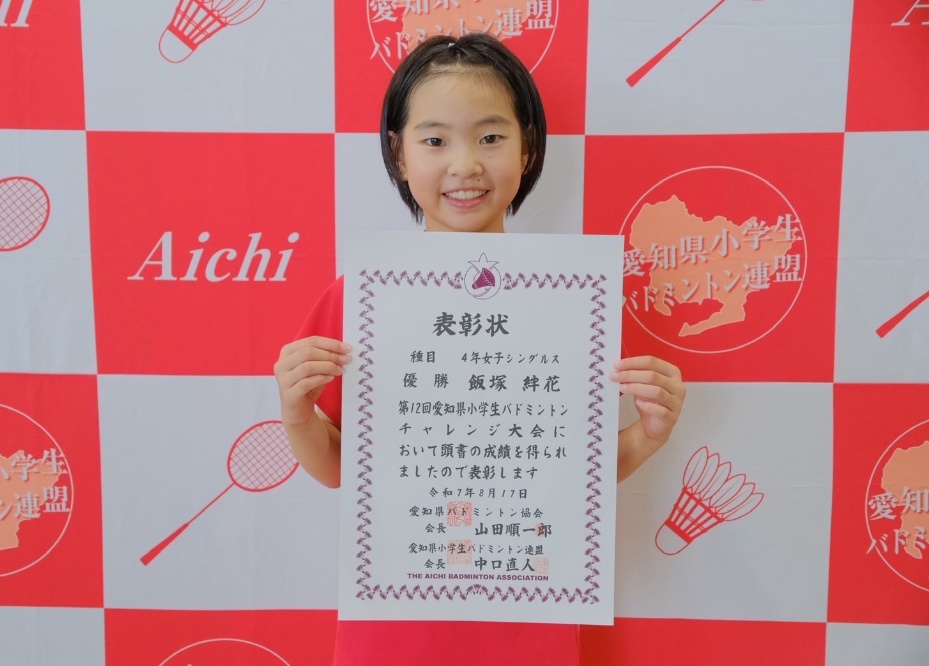 愛知県小学生
バドミントン連盟
Aichi
愛知県小学生
バドミントン連盟
表彰状
種目 4年女子シングルス
優勝 飯塚 絆花
第12回愛知県小学生バドミントン
チャレンジ大会に
おいて頭書の成績を得られ
ましたので表彰します
令和7年8月17日
愛知県バドミントン協会
会長 山田順一郎
愛知県小学生バドミントン連盟
会長 中口直人
THE AICHI BADMINTON ASSOCIATION